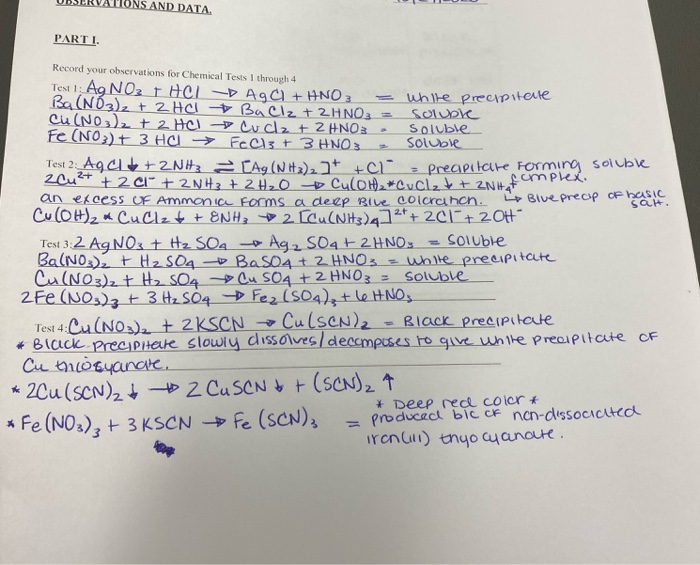 OBSERVATIONS AND DATA.
PART I.
Record your observations for Chemical Tests 1 through 4
Test 1: AgNO₃ + HCl → AgCl + HNO₃ = white precipitate
Ba(NO₃)₂ + 2 HCl → BaCl₂ + 2HNO₃ = soluble
Cu(NO₃)₂ + 2 HCl → CuCl₂ + 2HNO₃ = soluble
Fe(NO₃) + 3 HCl → FeCl₃ + 3 HNO₃ = soluble
Test 2: AgCl↓ + 2NH₃ ⇌ [Ag(NH₃)₂]⁺ + Cl⁻ = precipitate forming soluble
complex.
2Cu²⁺ + 2Cl⁻ + 2NH₃ + 2H₂O → Cu(OH)₂*CuCl₂↓ + 2NH₄⁺
an excess of Ammonia forms a deep Blue coloration. ↳ Blue precip of basic
salt.
Cu(OH)₂*CuCl₂↓ + 8NH₃ → 2[Cu(NH₃)₄]²⁺ + 2Cl⁻ + 2OH⁻
Test 3: 2 AgNO₃ + H₂SO₄ → Ag₂SO₄ + 2HNO₃ = soluble
Ba(NO₃)₂ + H₂SO₄ → BaSO₄ + 2HNO₃ = white precipitate
Cu(NO₃)₂ + H₂SO₄ → CuSO₄ + 2HNO₃ = soluble
2Fe(NO₃)₃ + 3H₂SO₄ → Fe₂(SO₄)₃ + 6HNO₃
Test 4: Cu(NO₃)₂ + 2KSCN → Cu(SCN)₂ = Black precipitate
* Black precipitate slowly dissolves/decomposes to give white precipitate of
Cu
* 2Cu(SCN)₂↓ → 2CuSCN↓ + (SCN)₂↑
* Deep red color *
* Fe(NO₃)₃ + 3KSCN → Fe(SCN)₃ = produced b/c of non-dissociated
iron(III) thyocyanate.